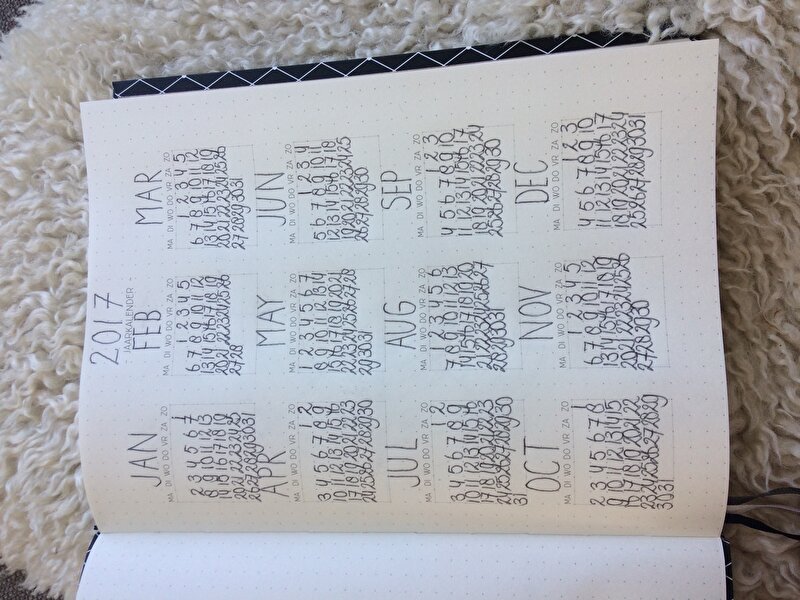 2017
- JAARKALENDER -
JAN
MA DI WO DO VR ZA ZO
1
2 3 4 5 6 7
8 9 10 11 12 13
14 15 16 17 18 19
20 21 22 23 24 25
26 27 28 29 30 31
FEB
MA DI WO DO VR ZA ZO
1 2 3 4 5
6 7 8 9 10 11 12
13 14 15 16 17 18 19
20 21 22 23 24 25 26
27 28
MAR
MA DI WO DO VR ZA ZO
1 2 3 4 5
6 7 8 9 10 11 12
13 14 15 16 17 18 19
20 21 22 23 24 25 26
27 28 29 30 31
APR
MA DI WO DO VR ZA ZO
1 2
3 4 5 6 7 8 9
10 11 12 13 14 15 16
17 18 19 20 21 22 23
24 25 26 27 28 29 30
MAY
MA DI WO DO VR ZA ZO
1 2 3 4 5 6 7
8 9 10 11 12 13 14
15 16 17 18 19 20 21
22 23 24 25 26 27 28
29 30 31
JUN
MA DI WO DO VR ZA ZO
1 2 3 4
5 6 7 8 9 10 11
12 13 14 15 16 17 18
19 20 21 22 23 24 25
26 27 28 29 30
JUL
MA DI WO DO VR ZA ZO
1 2
3 4 5 6 7 8 9
10 11 12 13 14 15 16
17 18 19 20 21 22 23
24 25 26 27 28 29 30
31
AUG
MA DI WO DO VR ZA ZO
1 2 3 4 5 6
7 8 9 10 11 12 13
14 15 16 17 18 19 20
21 22 23 24 25 26 27
28 29 30 31
SEP
MA DI WO DO VR ZA ZO
1 2 3
4 5 6 7 8 9 10
11 12 13 14 15 16 17
18 19 20 21 22 23 24
25 26 27 28 29 30
OCT
MA DI WO DO VR ZA ZO
1
2 3 4 5 6 7 8
9 10 11 12 13 14 15
16 17 18 19 20 21 22
23 24 25 26 27 28 29
30 31
NOV
MA DI WO DO VR ZA ZO
1 2 3 4 5
6 7 8 9 10 11 12
13 14 15 16 17 18 19
20 21 22 23 24 25 26
27 28 29 30
DEC
MA DI WO DO VR ZA ZO
1 2 3
4 5 6 7 8 9 10
11 12 13 14 15 16 17
18 19 20 21 22 23 24
25 26 27 28 29 30 31